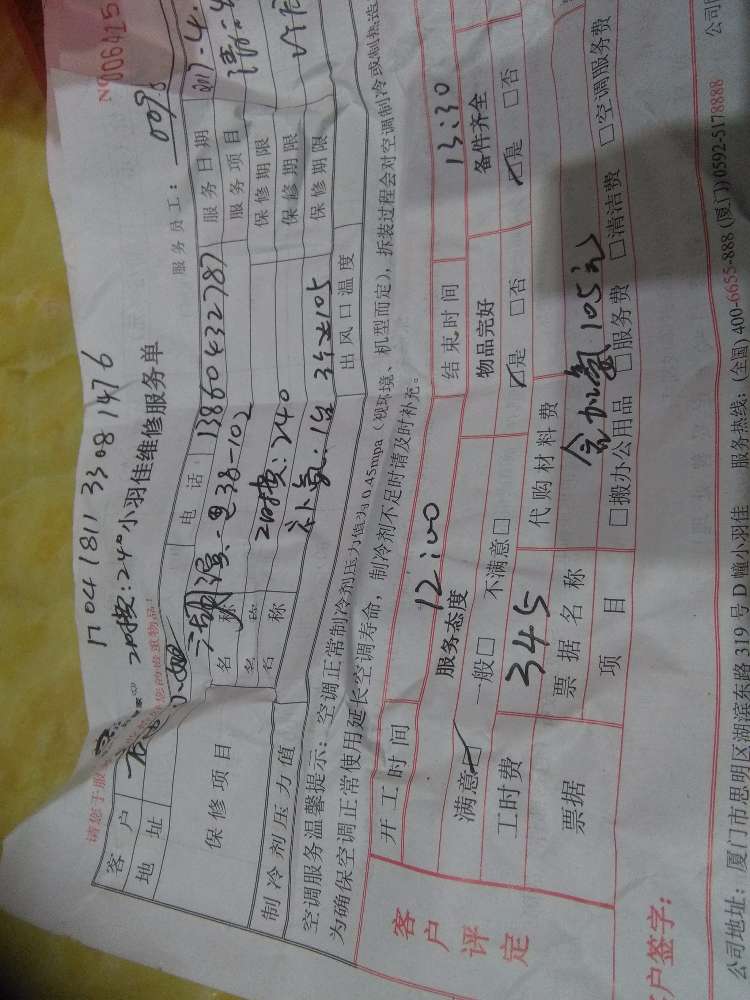 NO 006415
1704181133081476
2H0楼:240
小羽佳维修服务单
服务员工: 0098
客户
电话 13860432787
服务日期 2017.4.
地址
湖滨一里38-102
服务项目 清洗
保修项目
名称 2H0楼:240
保修期限
名称 补氟:1台 34×105
保修期限
名称
保修期限
制冷剂压力值
出风口温度
空调服务温馨提示:空调正常制冷剂压力值为0.45mpa(视环境、机型而定),拆装过程会对空调制冷或制热造
为确保空调正常使用延长空调寿命,制冷剂不足时请及时补充。
开工时间 12:00 结束时间 13:30
客户评定
服务态度 物品完好 备件齐全
满意☑ 一般□ 不满意□ ☑是 □否 ☑是 □否
工时费 345 代购材料费 含加氟105元
票据 票据名称
项目 □搬办公用品 □服务费 □清洁费 □空调服务费
户签字:
公司地址:厦门市思明区湖滨东路319号D幢小羽佳 服务热线:(全国)400-6655-888 (厦门)0592-5178888 公司